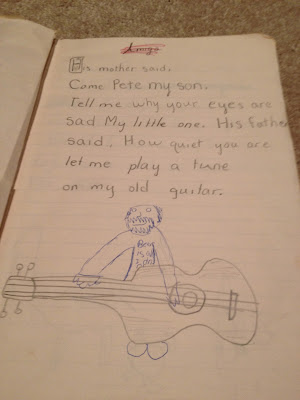 Amigo
His mother said.
Come Pete my son.
Tell me why your eyes are
sad My little one. His Father
said. How quiet you are
let me play a tune
on my old guitar.